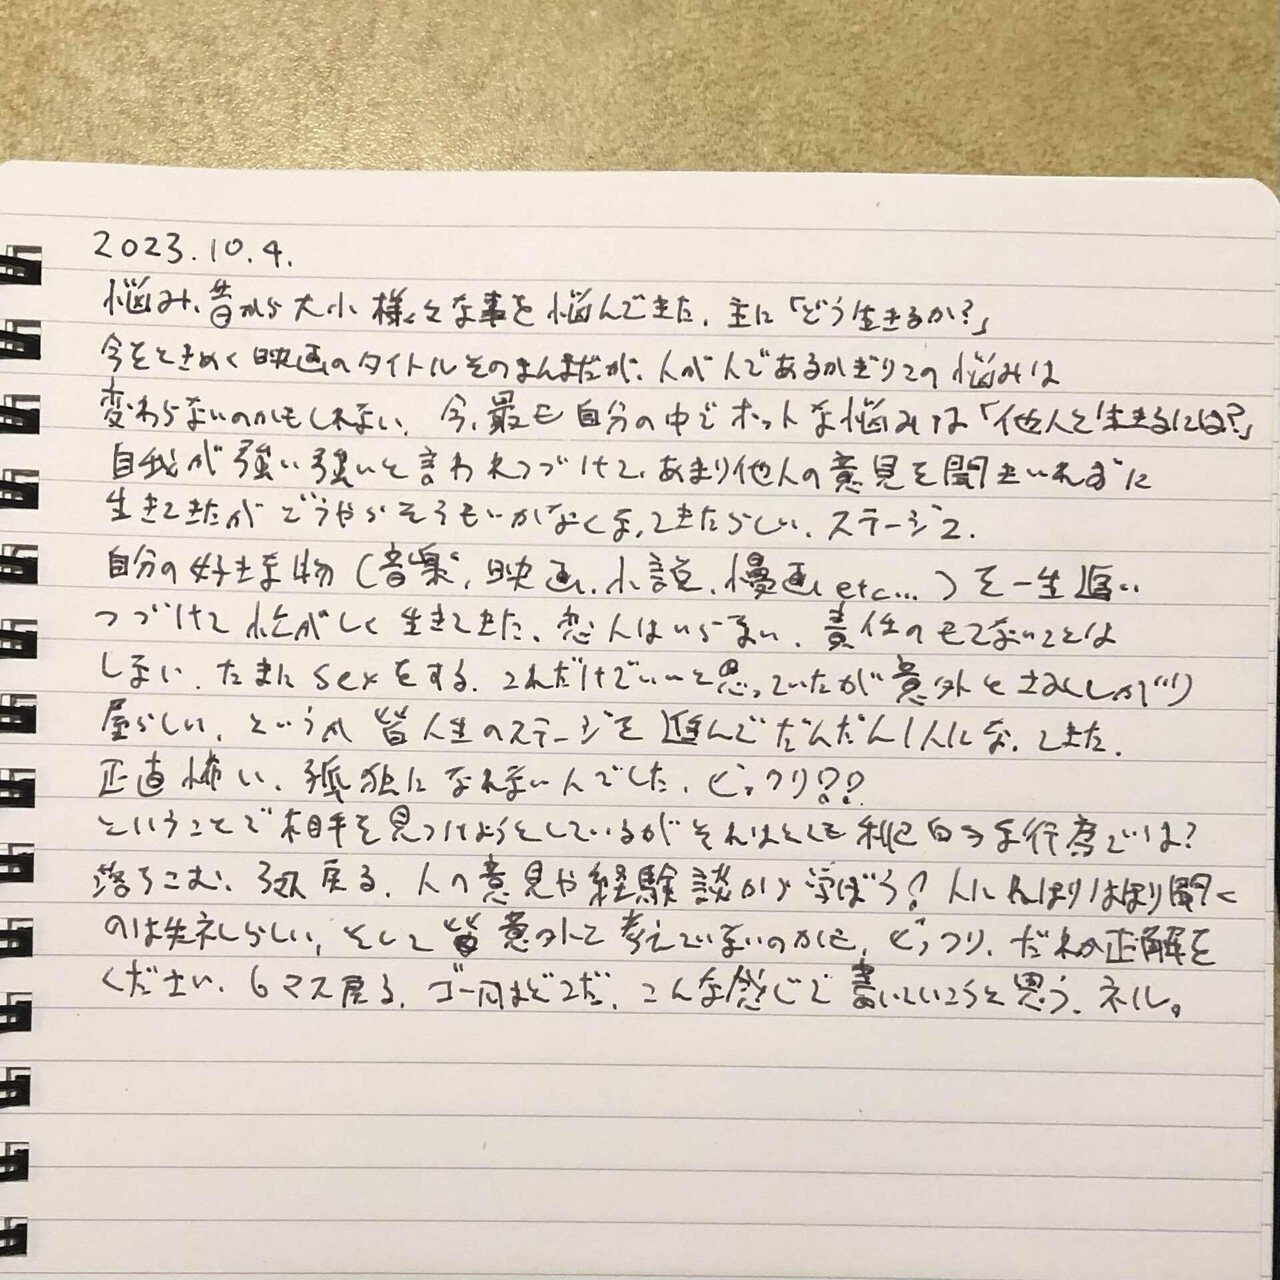 2023.10.4.
悩み、昔から大小様々な事を悩んできた、主に「どう生きるか?」
今をときめく映画のタイトルそのまんまだが、人が人であるかぎりこの悩みは
変わらないのかもしれない、今、最も自分の中でホットな悩みは「他人と生きるには?」
自我が強い強いと言われつづけて、あまり他人の意見を聞きいれずに
生きてきたがどうやらそうもいかなくなってきたらしい、ステージ2.
自分の好きな物(音楽、映画、小説、漫画etc...)を一生追い
つづけて忙がしく生きてきた、恋人はいらない、責任のもてないことは
しない、たまにsexをする、これだけでいいと思っていたが意外とさみしがり
屋らしい、というか皆人生のステージを進んでだんだん1人になってきた、
正直怖い、孤独になれないんでした、びっくり??
ということで相手を見つけようとしているがそれはとても利己的な行為では?
落ちこむ、ふり戻る、人の意見や経験談から学ぼう!人にねほりはほり聞く
のは失礼らしい、そして皆意外と考えていないのかも、びっくり、だれか正解を
ください、6マス戻る、ゴールはどこだ、こんな感じで書いていこうと思う、ネル。